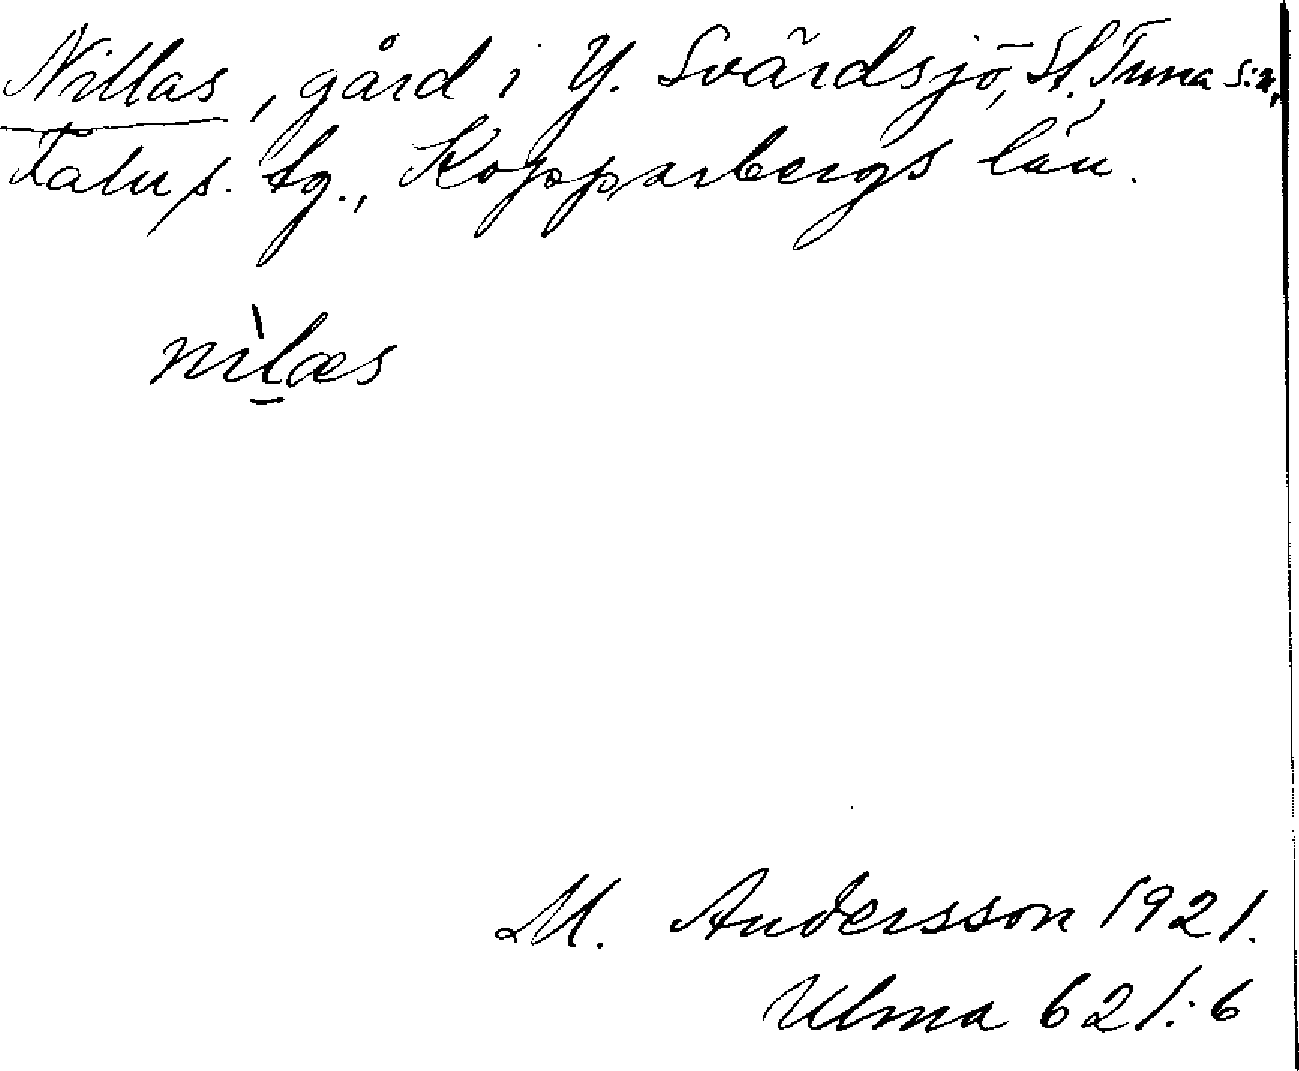 Nillas, gård i Y. Svärdsjö, St. Tuna s:n,
Falu s. tg., Kopparbergs län.
nìlas
M. Andersson 1921.
Ulma 621:6